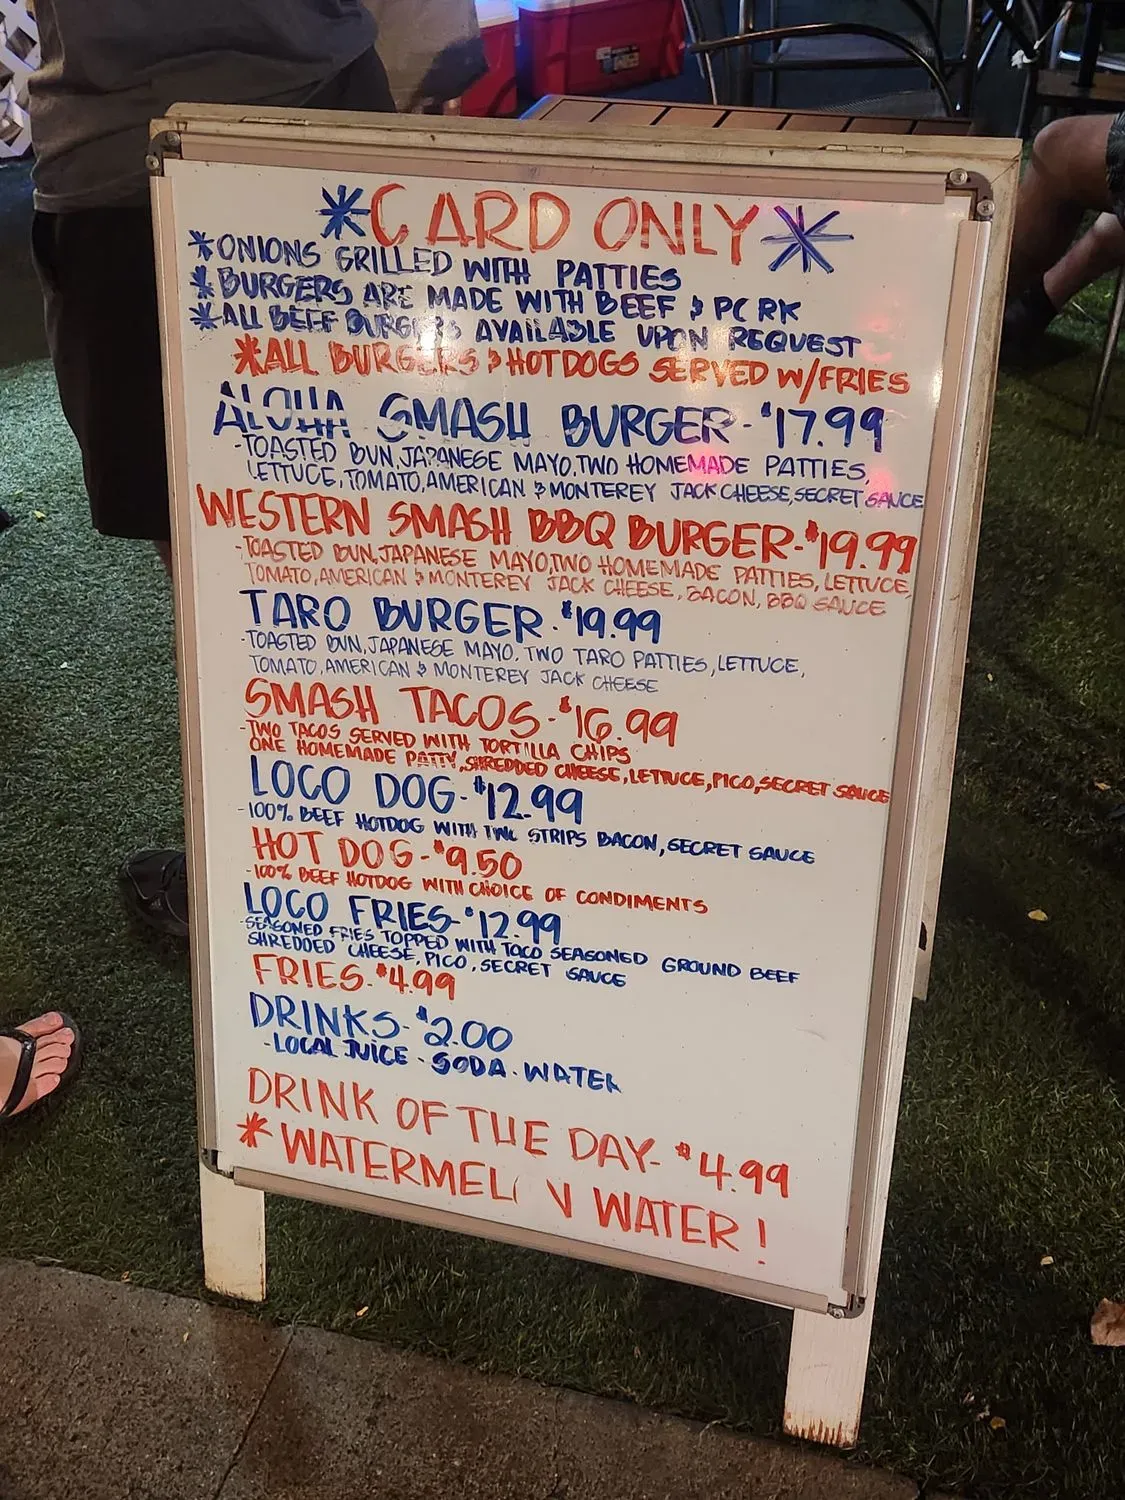 *CARD ONLY*
*ONIONS GRILLED WITH PATTIES
*BURGERS ARE MADE WITH BEEF & PORK
*ALL BEEF BURGERS AVAILABLE UPON REQUEST
*ALL BURGERS & HOTDOGS SERVED W/FRIES
ALOHA SMASH BURGER-$17.99
-TOASTED BUN, JAPANESE MAYO, TWO HOMEMADE PATTIES,
LETTUCE, TOMATO, AMERICAN & MONTEREY JACK CHEESE, SECRET SAUCE
WESTERN SMASH BBQ BURGER-$19.99
-TOASTED BUN, JAPANESE MAYO, TWO HOMEMADE PATTIES, LETTUCE,
TOMATO, AMERICAN & MONTEREY JACK CHEESE, BACON, BBQ SAUCE
TARO BURGER-$19.99
-TOASTED BUN, JAPANESE MAYO, TWO TARO PATTIES, LETTUCE,
TOMATO, AMERICAN & MONTEREY JACK CHEESE
SMASH TACOS-$16.99
-TWO TACOS SERVED WITH TORTILLA CHIPS
ONE HOMEMADE PATTY, SHREDDED CHEESE, LETTUCE, PICO, SECRET SAUCE
LOCO DOG-$12.99
-100% BEEF HOTDOG WITH TWO STRIPS BACON, SECRET SAUCE
HOT DOG-$9.50
-100% BEEF HOTDOG WITH CHOICE OF CONDIMENTS
LOCO FRIES-$12.99
-SEASONED FRIES TOPPED WITH TACO SEASONED GROUND BEEF
SHREDDED CHEESE, PICO, SECRET SAUCE
FRIES-$4.99
DRINKS-$2.00
-LOCAL JUICE - SODA - WATER
DRINK OF THE DAY-$4.99
*WATERMELON WATER!